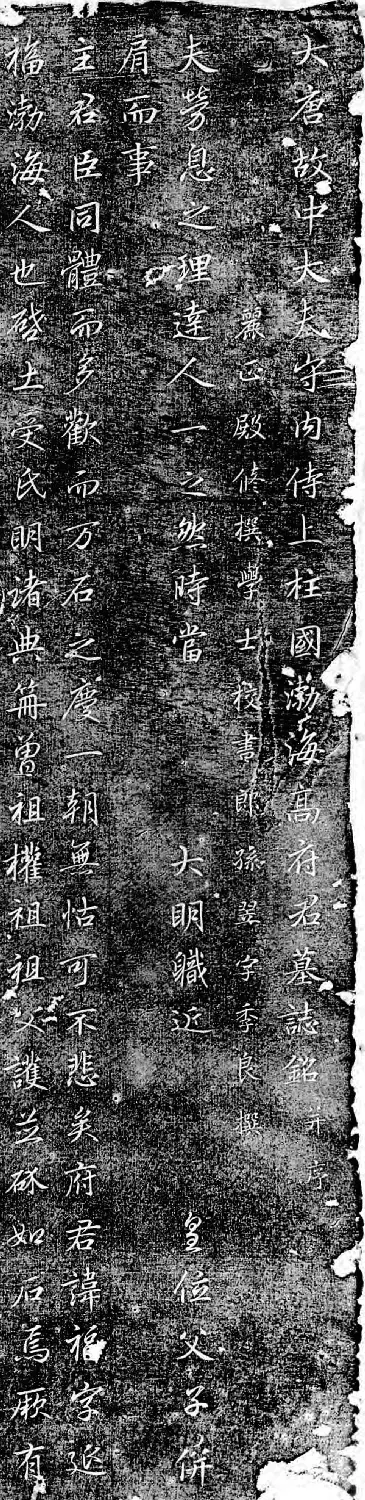 大唐故中大夫守內侍上柱國渤海高府君墓誌銘并序
麗正殿修撰學士校書郎孫翌字季良撰
夫勞息之理達人一之然時當 大明職近 皇位父子併
肩而事
主君臣同體而多歡而万石之慶一朝無怙可不悲矣府君諱福字延
福渤海人也啓土受氏明諸典冊曾祖權祖祖父護並硃如石焉厥有